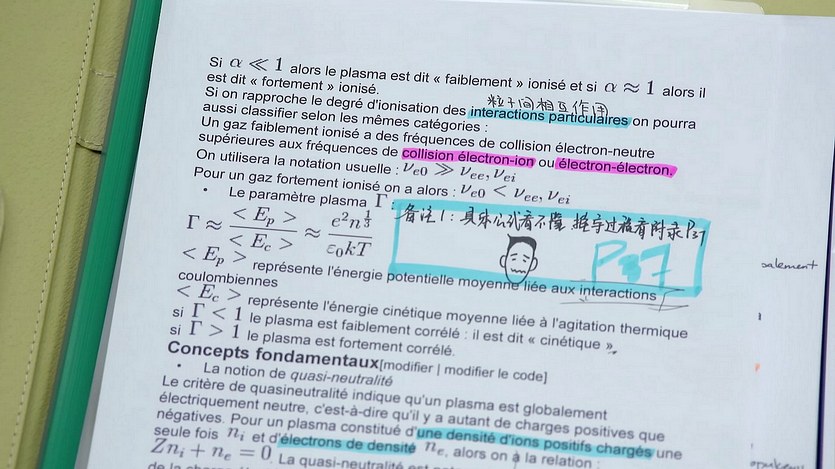 Si α ≪ 1 alors le plasma est dit « faiblement » ionisé et si α ≈ 1 alors il
est dit « fortement » ionisé.
粒子间相互作用
Si on rapproche le degré d'ionisation des interactions particulaires on pourra
aussi classifier selon les mêmes catégories :
Un gaz faiblement ionisé a des fréquences de collision électron-neutre
supérieures aux fréquences de collision électron-ion ou électron-électron.
On utilisera la notation usuelle : νe0 ≫ νee, νei
Pour un gaz fortement ionisé on a alors : νe0 < νee, νei
• Le paramètre plasma Γ :
备注1：具体公式看不懂 推导过程看附录P37
Γ ≈ < Ep > / < Ec > ≈ e²n^(1/3) / ε0kT
P37
< Ep > représente l'énergie potentielle moyenne liée aux interactions
coulombiennes
< Ec > représente l'énergie cinétique moyenne liée à l'agitation thermique
si Γ < 1 le plasma est faiblement corrélé : il est dit « cinétique ».
si Γ > 1 le plasma est fortement corrélé.
Concepts fondamentaux[modifier | modifier le code]
• La notion de quasi-neutralité
Le critère de quasineutralité indique qu'un plasma est globalement
électriquement neutre, c'est-à-dire qu'il y a autant de charges positives que
négatives. Pour un plasma constitué d'une densité d'ions positifs chargés une
seule fois ni et d'électrons de densité ne, alors on a la relation :
Zni + ne = 0. La quasi-neutralité est